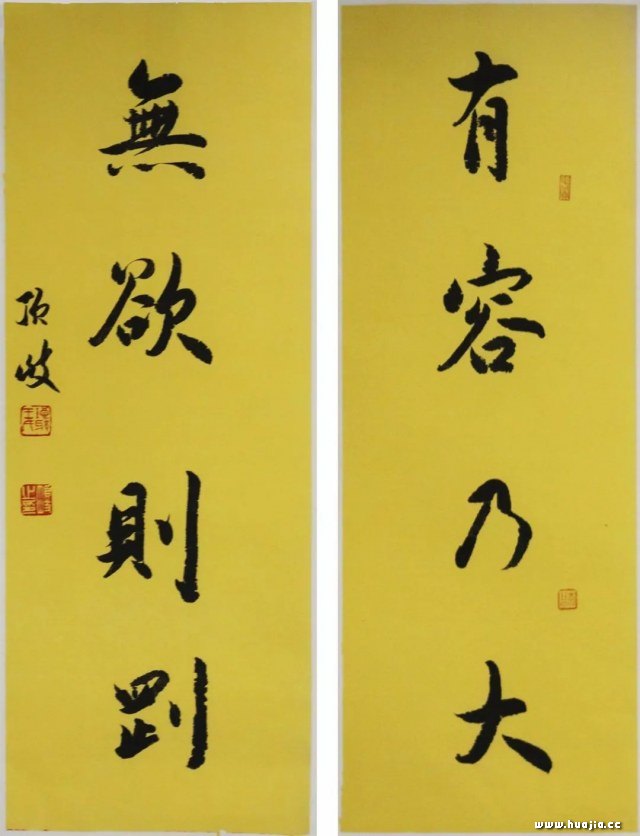 有容乃大
無欲則剛
www.huajia.cc